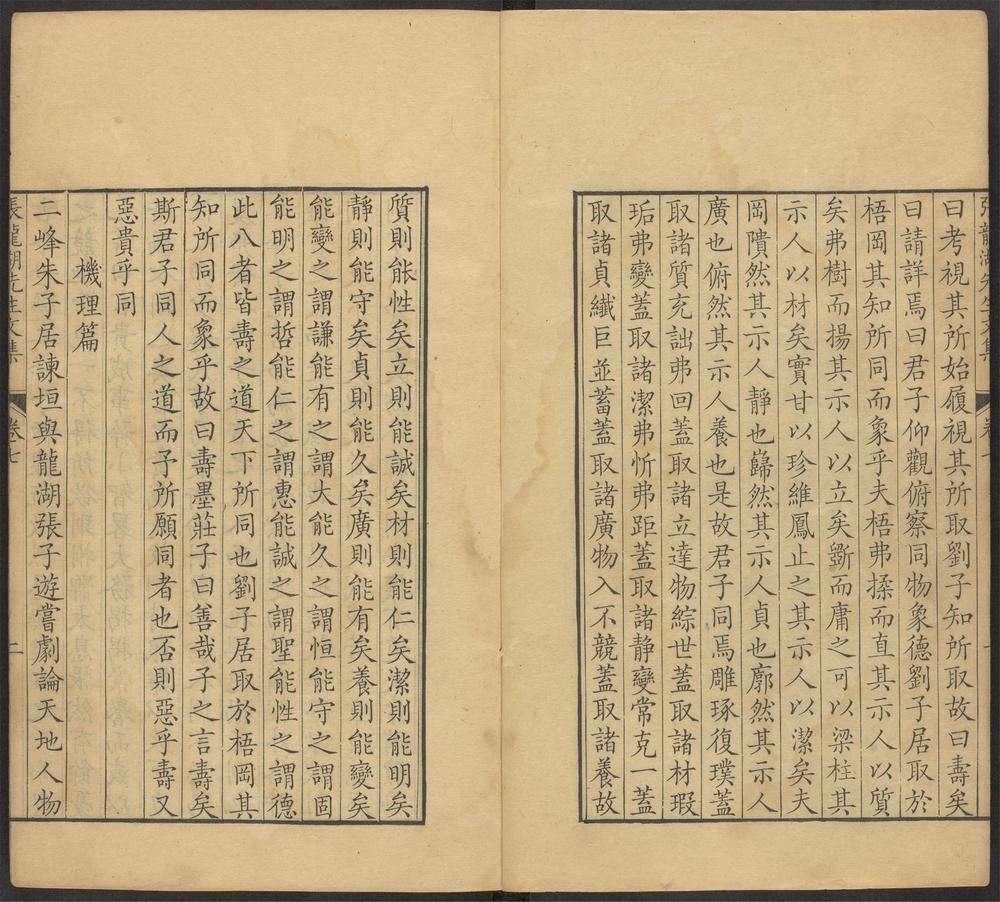 張龍湖先生文集
卷七
曰考視其所始履視其所取劉子知所取故曰壽矣
曰請詳焉曰君子仰觀俯察同物象德劉子居取於
梧岡其知所同而象乎夫梧弗揉而直其示人以質
矣弗樹而揚其示人以立矣斵而庸之可以梁柱其
示人以材矣實甘以珍維鳳止之其示人以潔矣夫
岡隤然其示人靜也巋然其示人貞也廓然其示人
廣也俯然其示人養也是故君子同焉雕琢復璞蓋
取諸質充詘弗回蓋取諸立達物綜世蓋取諸材瑕
垢弗變蓋取諸潔弗忻弗距蓋取諸静變常克一蓋
取諸貞纖巨並蓄蓋取諸廣物入不競蓋取諸養故
質則能性矣立則能誠矣材則能仁矣潔則能明矣
靜則能守矣貞則能久矣廣則能有矣養則能變矣
能變之謂謙能有之謂大能久之謂恒能守之謂固
能明之謂哲能仁之謂惠能誠之謂聖能性之謂德
此八者皆壽之道天下所同也劉子居取於梧岡其
知所同而象乎故曰壽墨莊子曰善哉子之言壽矣
斯君子同人之道而予所願同者也否則惡乎壽又
惡貴乎同
機理篇
二峰朱子居諫垣與龍湖張子遊嘗劇論天地人物
張龍湖先生文集
卷七
二